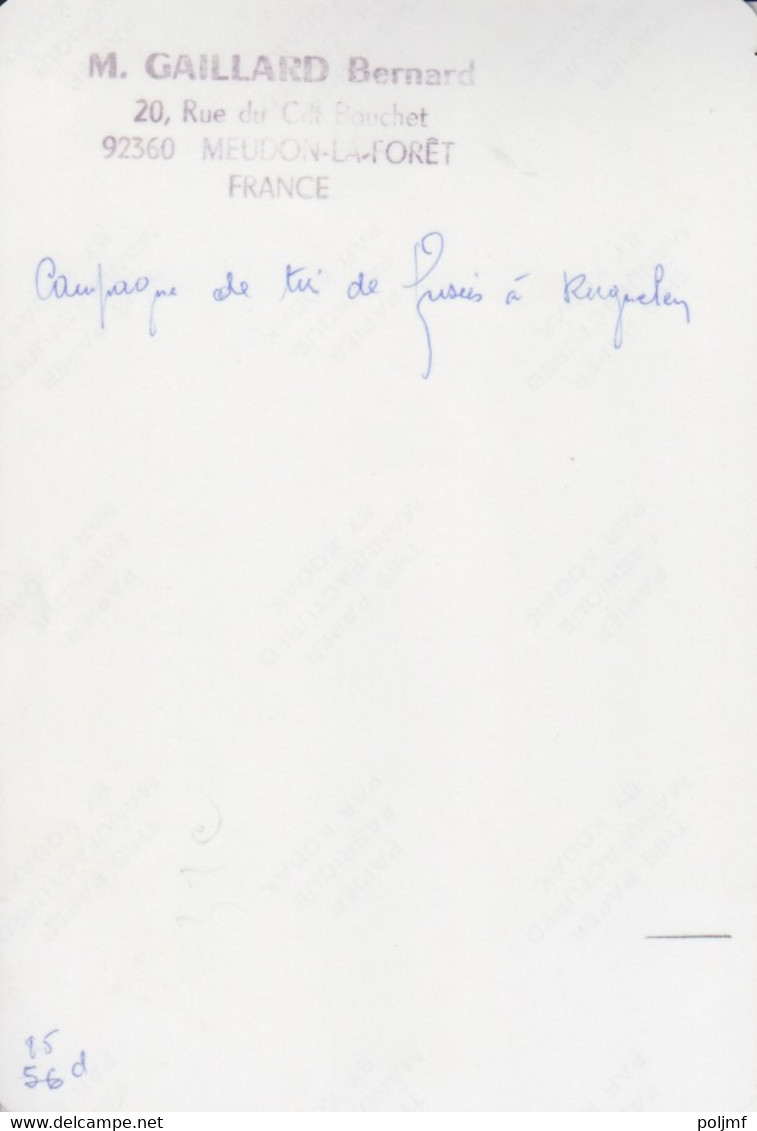 M. GAILLARD Bernard
20, Rue du Cdt Bouchet
92360 MEUDON-LA-FORÊT
FRANCE
Campagne de tir de fusées à Kerguelen
85
56 d
www.delcampe.net
poljmf